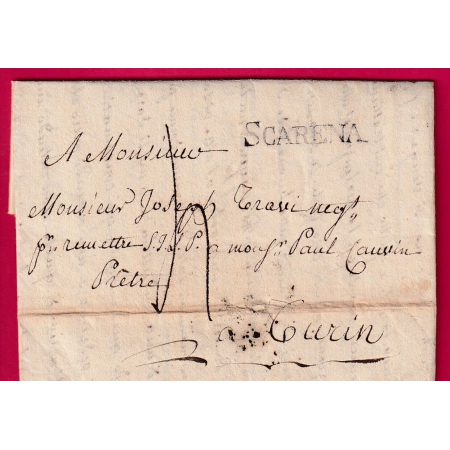 SCARENA
A Monsieur
Monsieur Joseph Travi negt.
pr. remettre S.I.S.P. a monsr. Paul Cauvin
Prêtre
a Turin